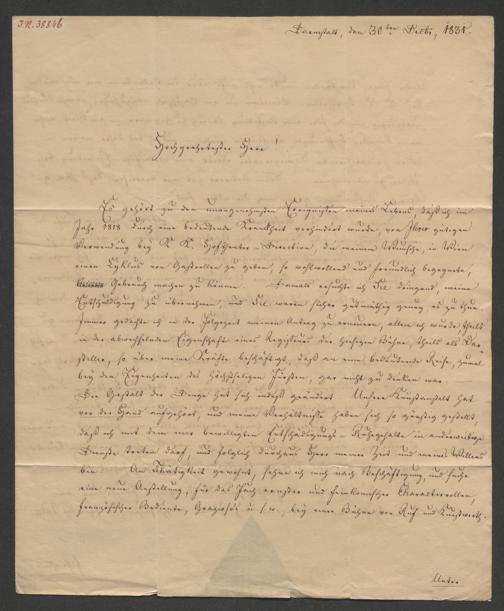 I.N. 38846
Darmstadt, den 30ten Dezbr, 1831.
Hochgeehrtester Herr!
Es gehört zu den unangenehmsten Ereignissen meines Lebens, daß ich im
Jahr 1818 durch eine bedeutende Krankheit verhindert wurde, von Ihrer gütigen
Verwendung bey K. K. Hoftheater-Direction, die meinem Wunsche, in Wien
einen Cyklus von Gastrollen zu geben, so wohlwollend und freundlich begegnete,
Gebrauch machen zu können. Damals ersuchte ich Sie dringend, meine
Entschuldigung zu übernehmen, und Sie waren sicher gutmüthig genug es zu thun.
Immer gedachte ich in der Folgezeit meinen Antrag zu erneuern, allein ich wurde, theils
in der abwechselnden Eigenschaft eines Regisseurs der hiesigen Bühne, theils als Dar-
steller, so über meine Kräfte beschäftigt, daß an eine bedeutende Reise, zumal
bey den Eigenheiten des höchstseligen Fürsten, gar nicht zu denken war.
Die Gestalt der Dinge hat sich indeß geändert. Unsere Kunstanstalt hat
vor der Hand aufgehört, und meine Verhältnisse haben sich so günstig gestellt
daß ich mit dem mir bewilligten Entschädigungs-Ruhegehalte in anderweitige
Dienste treten darf, und folglich durchaus Herr meiner Zeit und meines Willens
bin. An Thätigkeit gewöhnt, sehne ich mich nach Beschäftigung, und suche
eine neue Anstellung, für das Fach ernster und feinkomischer Charakterrollen,
französischer Bediente, Grazioso's u. s. w., bey einer Bühne von Ruf und Kunstwerth.
Unter-